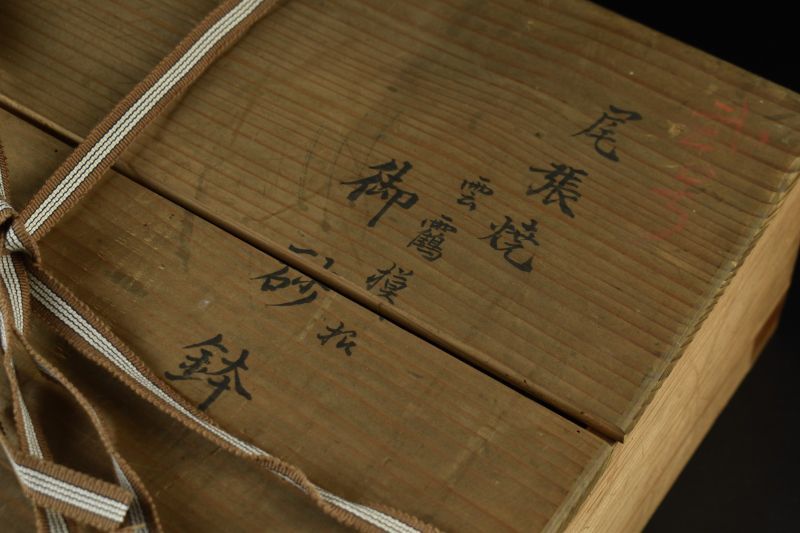 尾張焼
雲鶴模様
御砂鉢